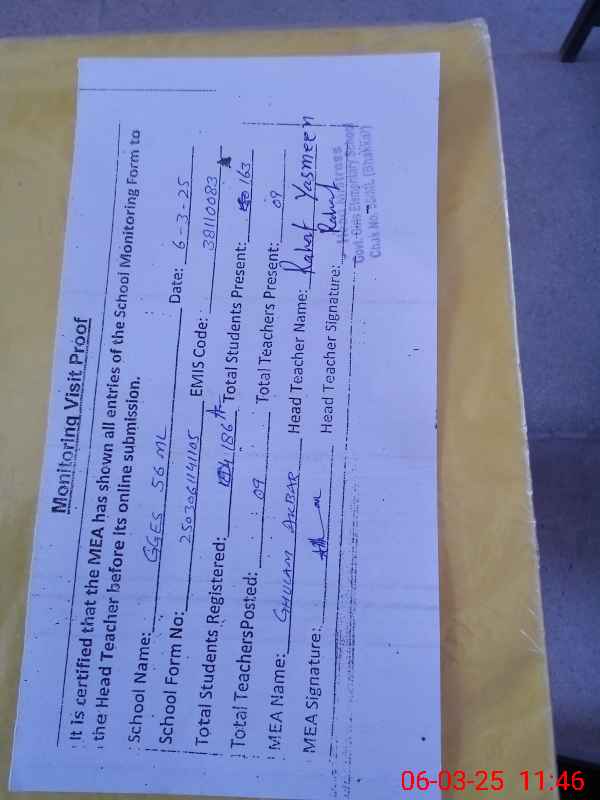 Monitoring Visit Proof
It is certified that the MEA has shown all entries of the School Monitoring Form to
the Head Teacher before its online submission.
School Name: GGES 56 ML Date: 6-3-25
School Form No: 2503061141105 EMIS Code: 38110083
Total Students Registered: 186 Total Students Present: 163
Total TeachersPosted: 09 Total Teachers Present: 09
MEA Name: GHULAM AKBAR Head Teacher Name: Rahat Yasmeen
MEA Signature: Head Teacher Signature: Rahat
Head Mistress
Govt. Girls Elementary School
Chak No. (Bhakkar)
06-03-25 11:46